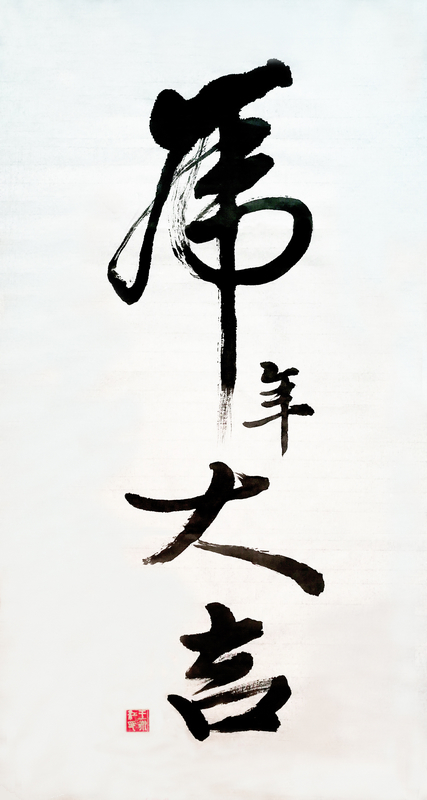 虎年大吉